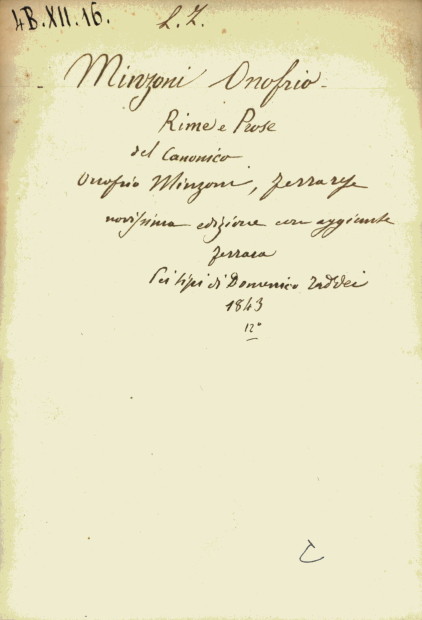 4B.XII.16. L.Z.
Minzoni Onofrio
Rime e Prose
del Canonico
Onofrio Minzoni, ferrarese
novissima edizione con aggiunte
ferrara
Pei tipi di Domenico Taddei
1843
12°
C